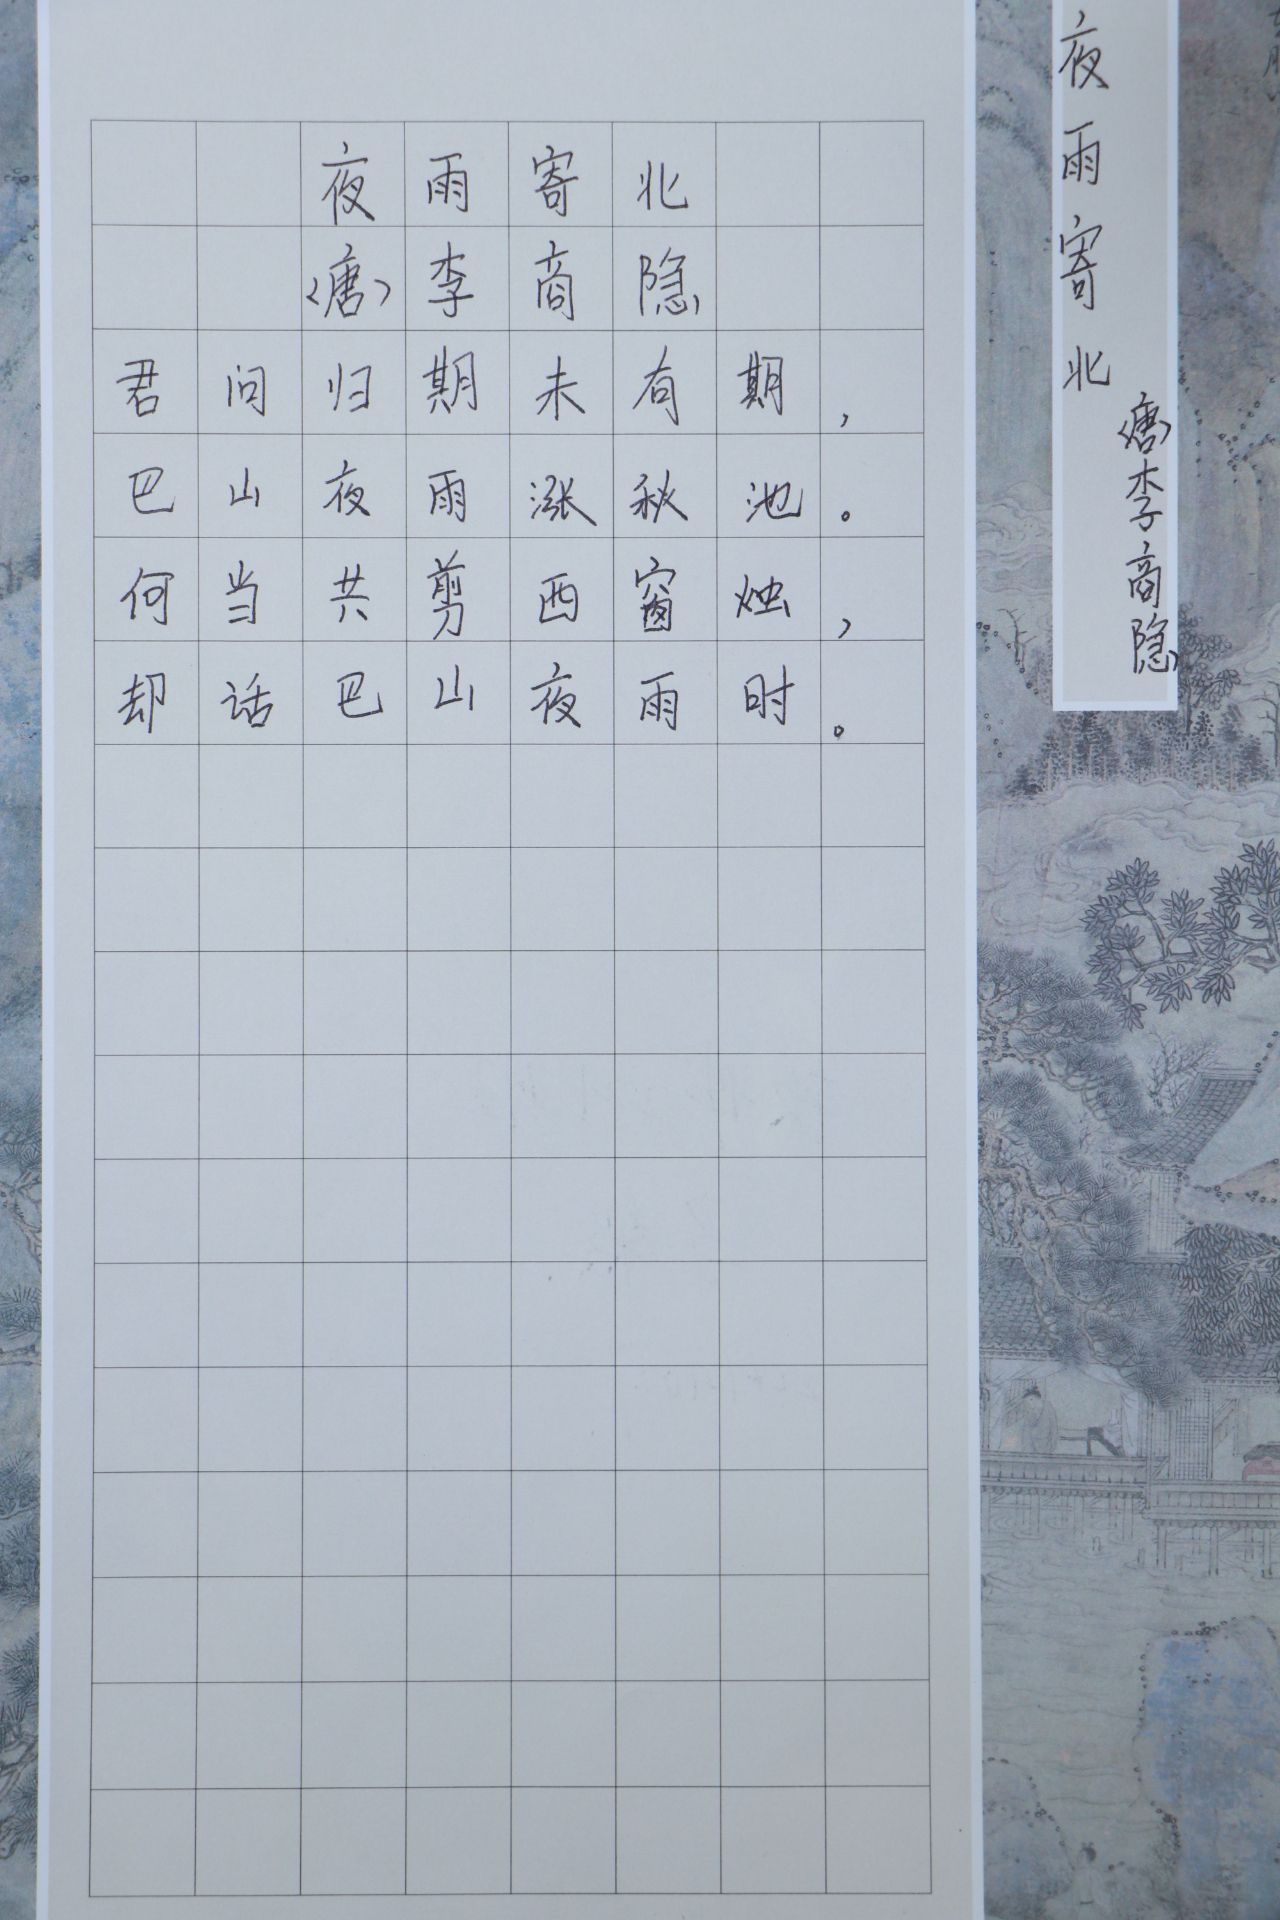 夜雨寄北
〈唐〉李商隐
君问归期未有期，
巴山夜雨涨秋池。
何当共剪西窗烛，
却话巴山夜雨时。
夜雨寄北
〈唐〉李商隐